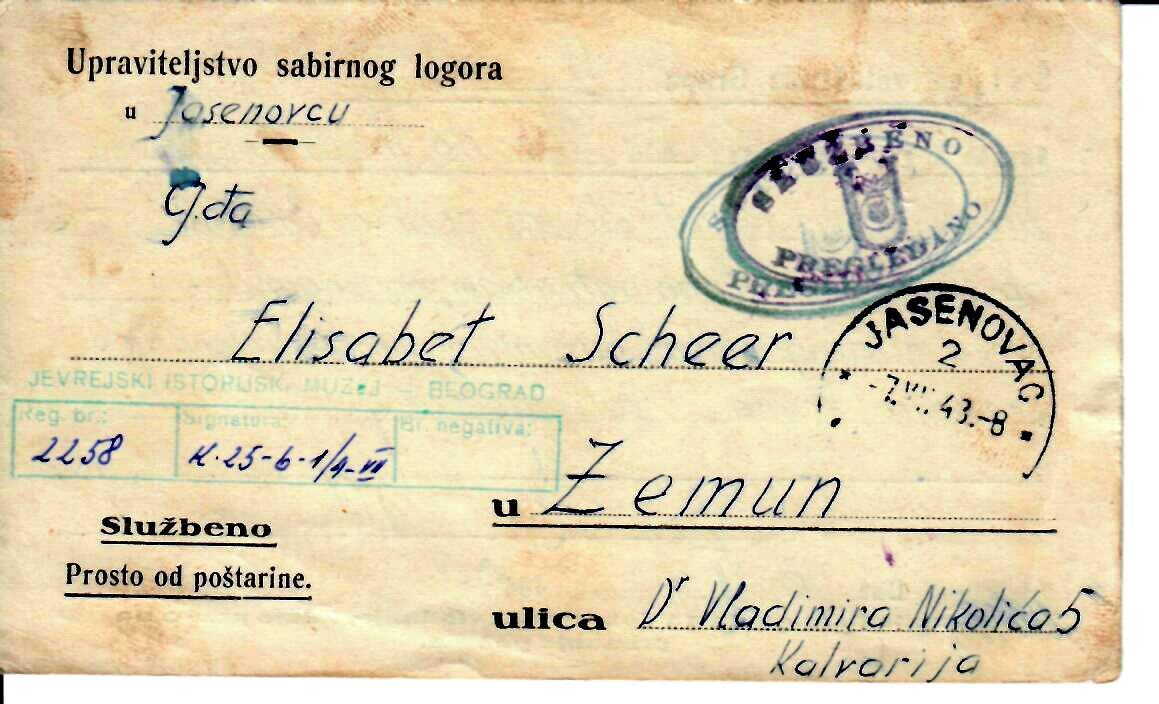 Upraviteljstvo sabirnog logora
u Jasenovcu
Gđa
SLUŽBENO
PREGLEDANO
PREGLEDANO
Elisabet Scheer
JASENOVAC
2
43.-8
JEVREJSKI ISTORIJSKI MUZEJ – BEOGRAD
Reg. br.: Signatura: Br. negativa:
2258 K.25-6-1/4-VII
u Zemun
Službeno
Prosto od poštarine.
ulica Dr Vladimira Nikolića 5
Kalvarija